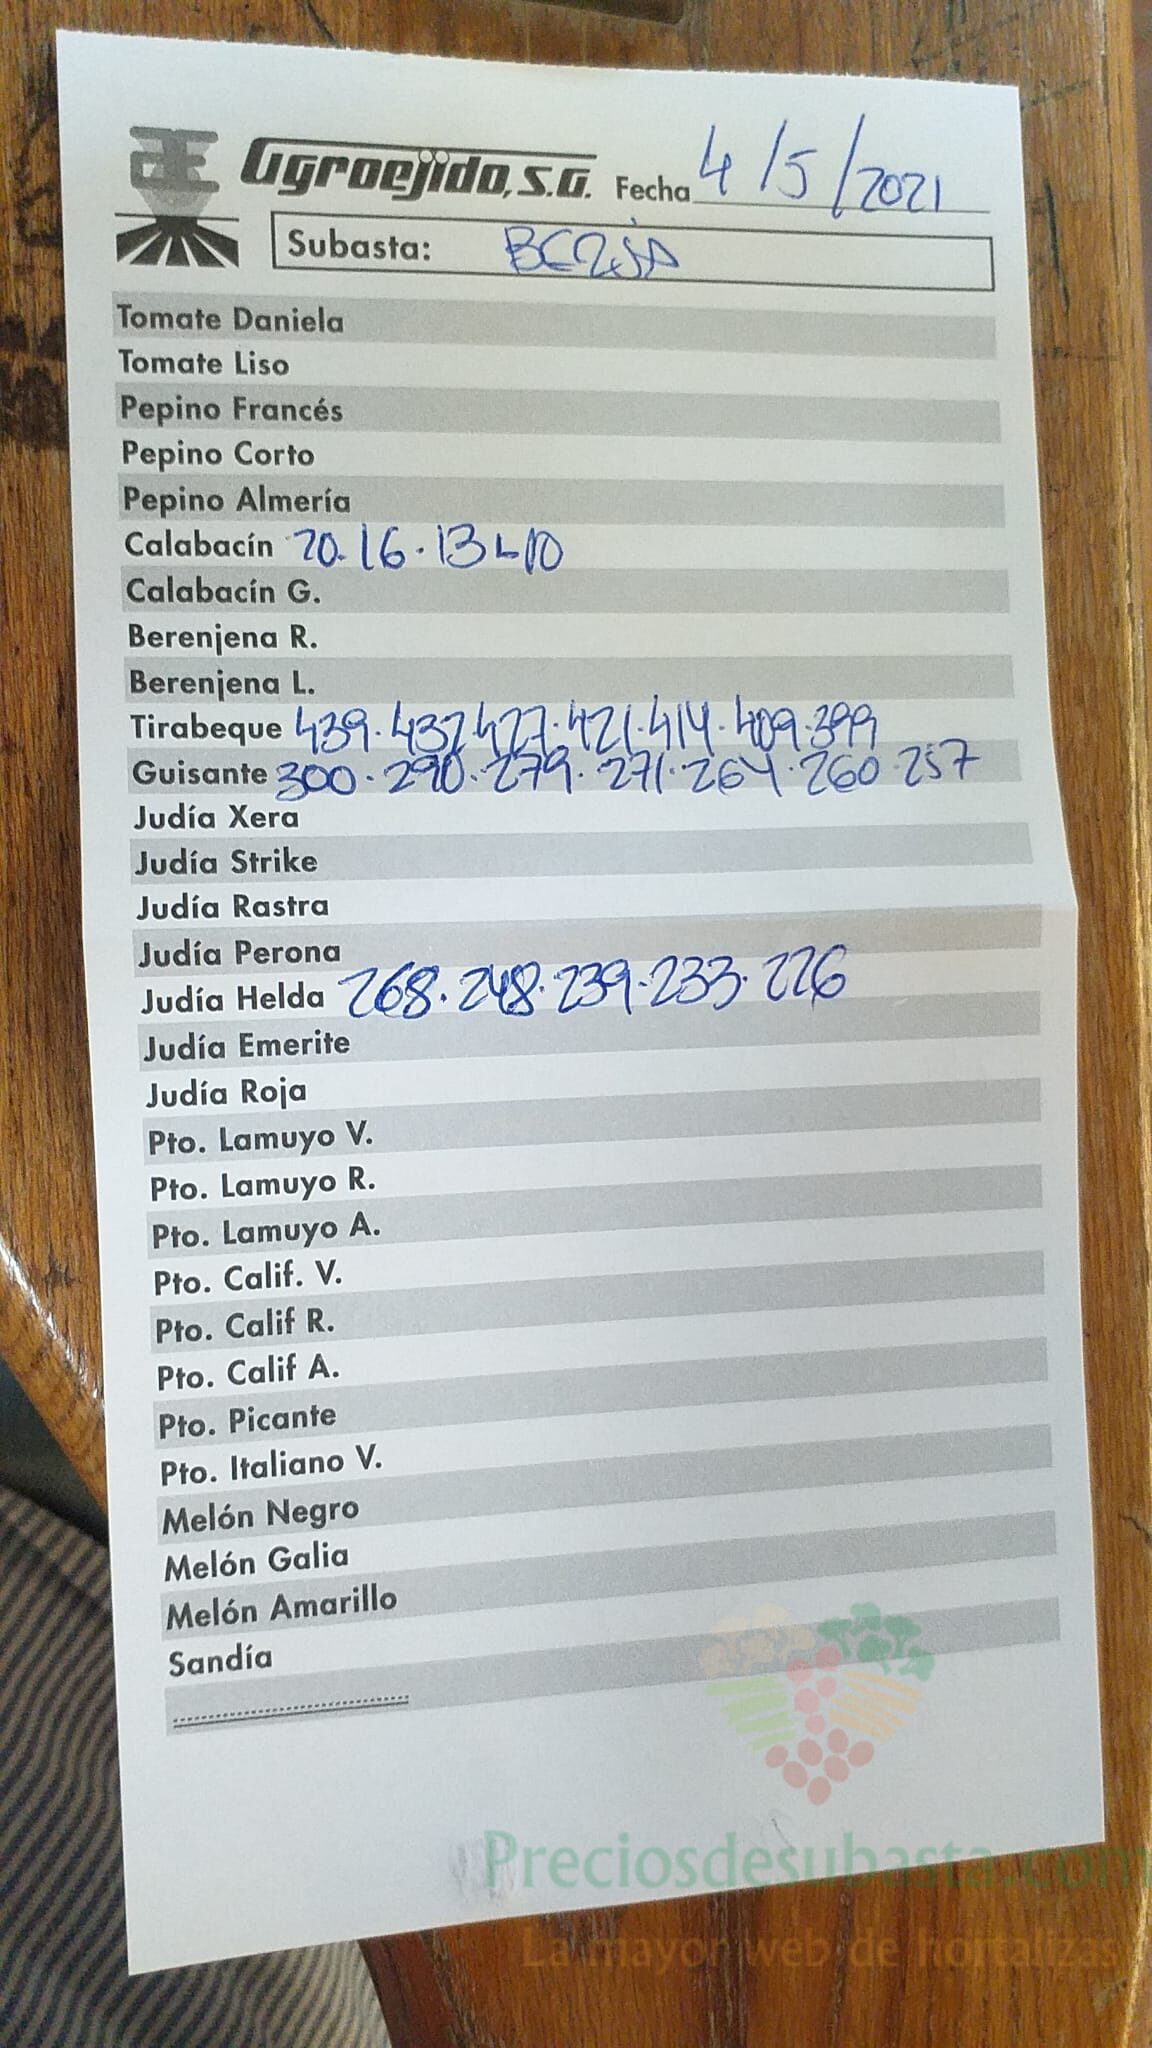 Agroejido, S.A. Fecha 4/5/2021
Subasta: BERJA
Tomate Daniela
Tomate Liso
Pepino Francés
Pepino Corto
Pepino Almería
Calabacín 20.16.13 10
Calabacín G.
Berenjena R.
Berenjena L.
Tirabeque 439.437.427.421.414.409.399
Guisante 300.290.279.271.264.260 257
Judía Xera
Judía Strike
Judía Rastra
Judía Perona
Judía Helda 268.248.239.233.226
Judía Emerite
Judía Roja
Pto. Lamuyo V.
Pto. Lamuyo R.
Pto. Lamuyo A.
Pto. Calif. V.
Pto. Calif R.
Pto. Calif A.
Pto. Picante
Pto. Italiano V.
Melón Negro
Melón Galia
Melón Amarillo
Sandía
Preciosdesubasta.com
La mayor web de hortalizas